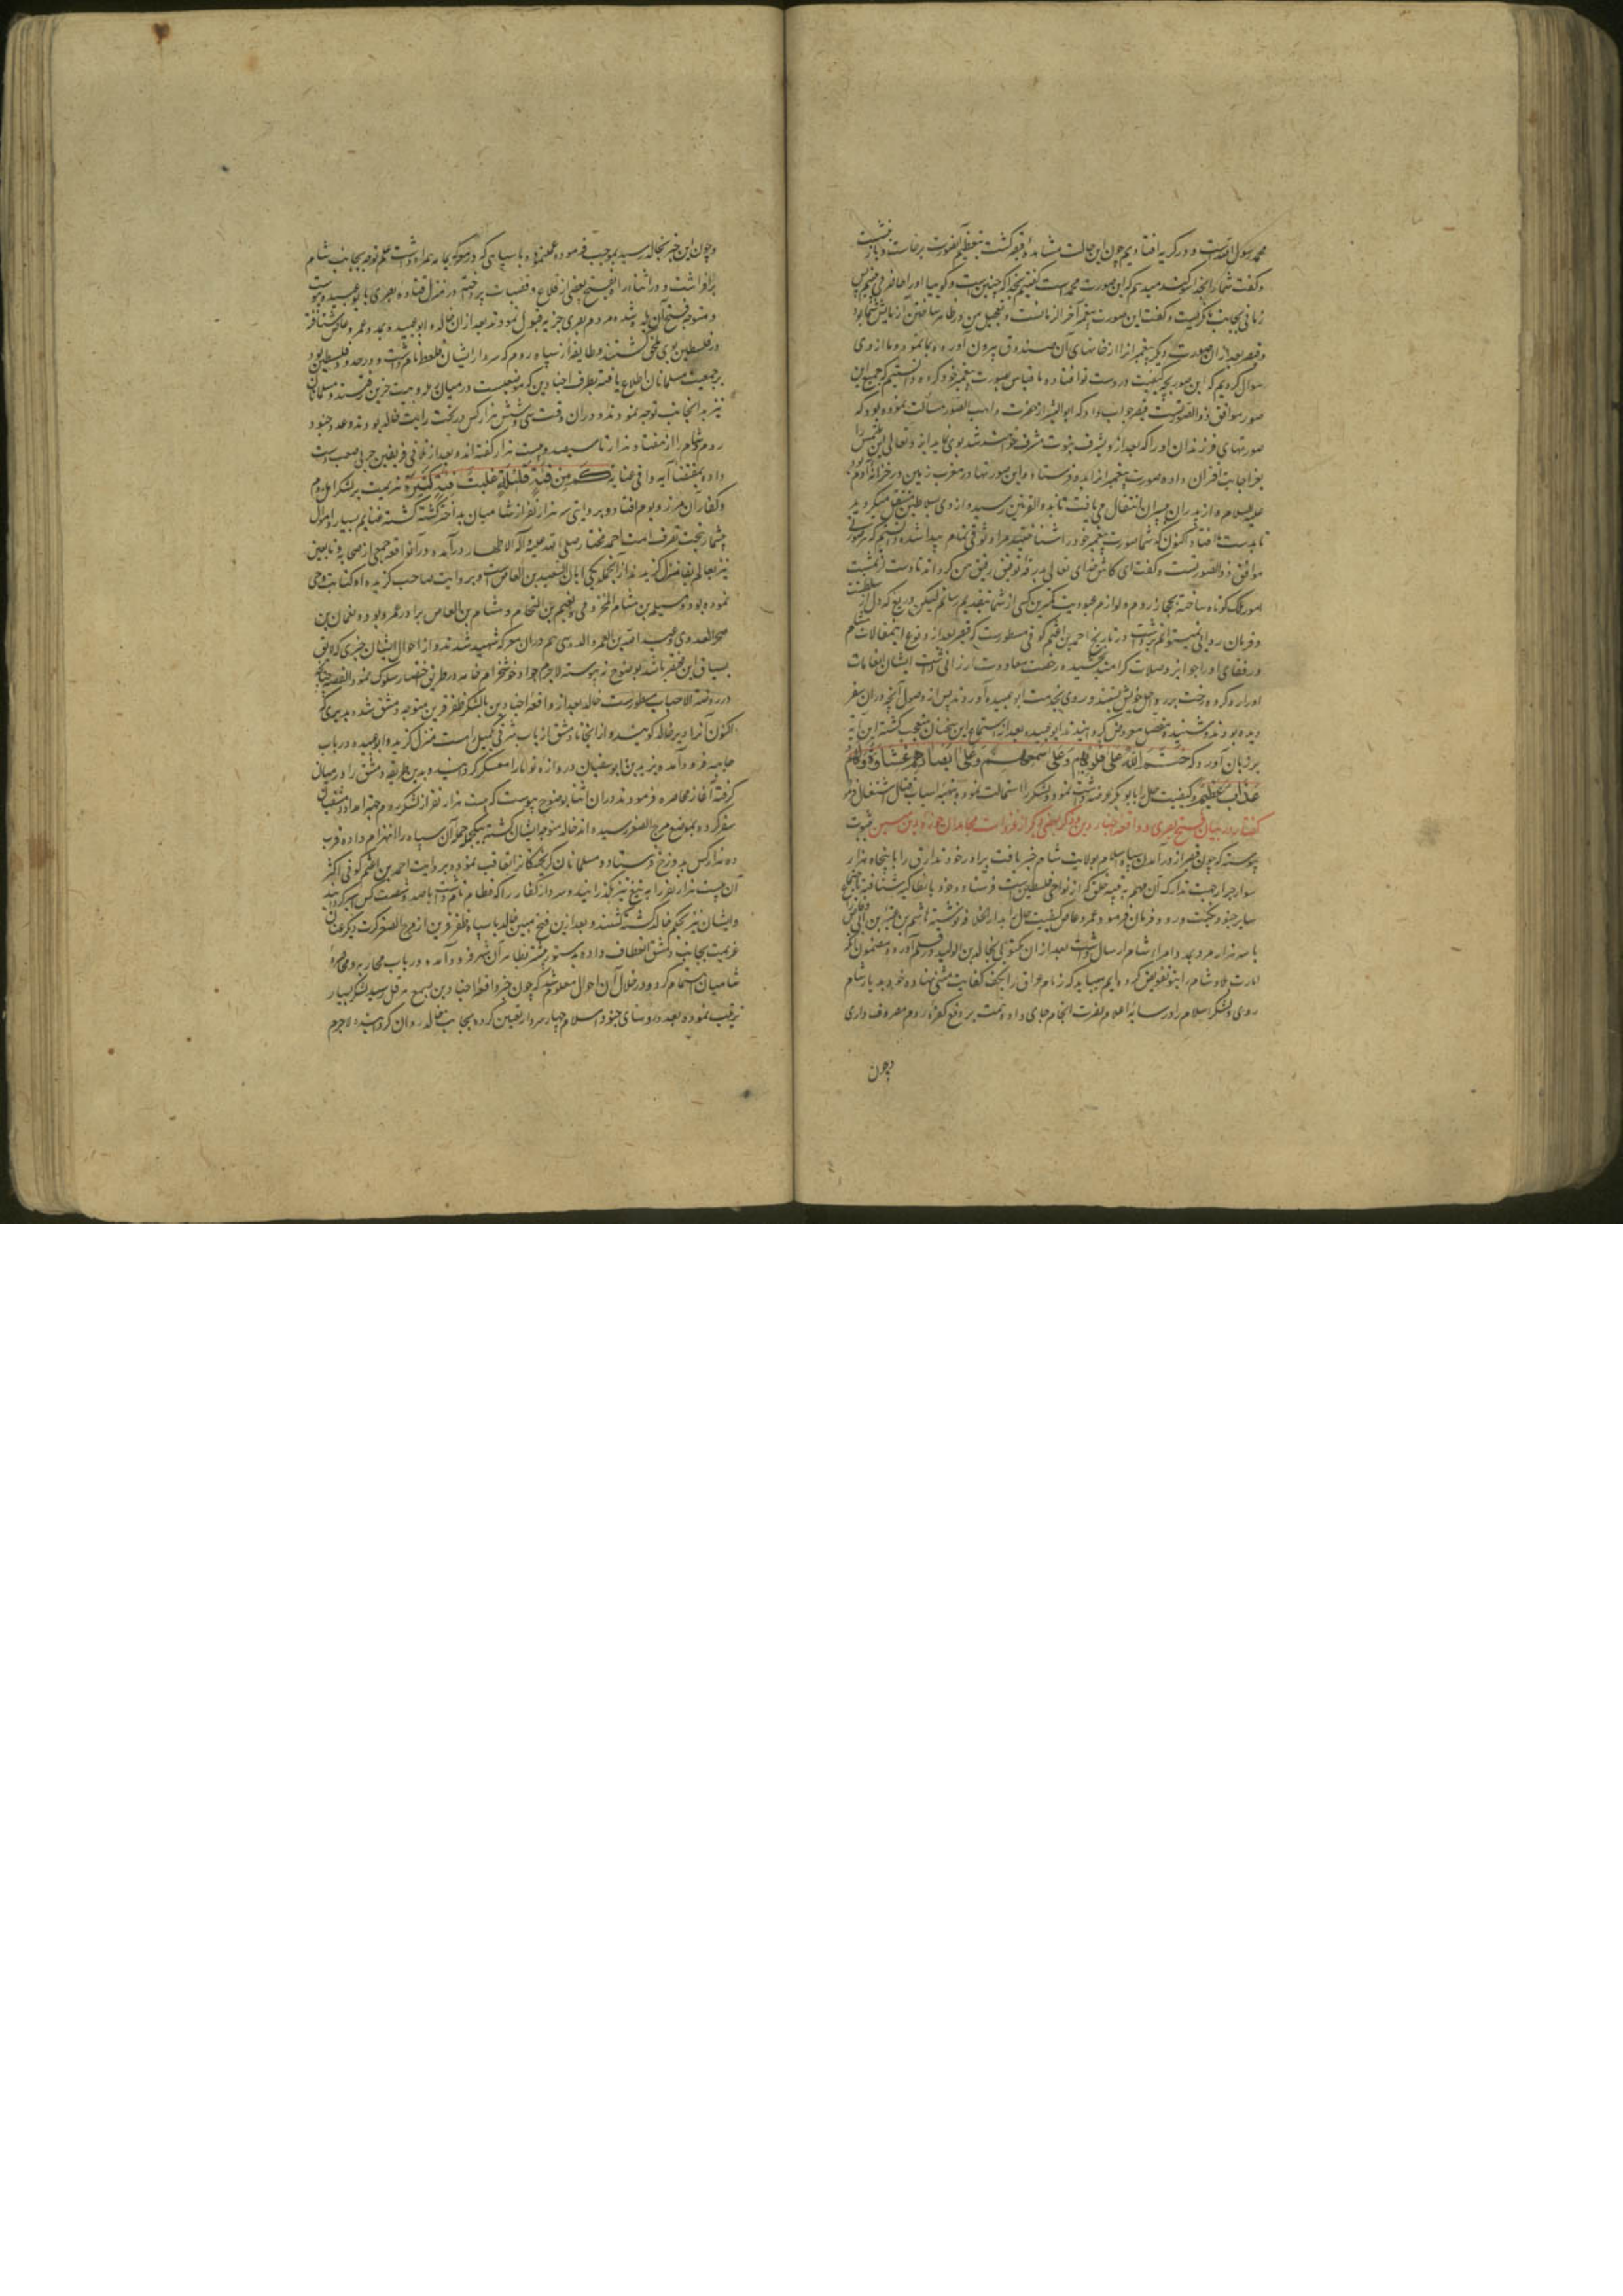 محمد رسول الله است و در گریه افتادیم چون این حالت مشاهده قیصر گشت بتعظیم آنصورت برخاست و باز بنشست
و گفت شما را بخدا سوگند میدهم که این صورت محمد است گفتیم بخدا که چنین است و گویا اورا حاضر می بینیم پس
زمانی بجانب ما نگریست و گفت این صورت پیغمبر آخر الزمانست و تعجیل من در ظاهر ساختن آن آزمایش شما بود
و قیصر بعد از ان صورت دیگر پیغمبرانرا از خانهای آن صندوق بیرون آورده بما نمود و ما از وی
سؤال کردیم که این صور بچه کیفیت در دست تو افتاده ما قیاس بصورت پیغمبر خود کرده دانستیم که جمیع این
صور موافق ذو الصورتست قیصر جواب داد که ابو البشر از حضرت واهب الصور مسألت نموده بود که
صورتهای فرزندان اورا که بعد از و بشرف نبوت مشرف خواهند شد بوی نماید ایزد تعالی این ملتمس را
بعز اجابت اقتران داده صورت پیغمبرانرا بدو فرستاد و این صورتها در مغرب زمین در خزانه آدم بود
علیه السلام و از پدران به پسران انتقال می یافت تا بذو القرنین رسید و از وی بسلاطین منتقل میگردید
تا بدست ما افتاد اکنون که شما صورت پیغمبر خود را شناختید مرا وثوقی تمام پیدا شده دانستیم که هر صورتی
موافق ذو الصورتست و گفت ای کاش خدای تعالی بدرقه توفیق رفیق من گرداند تا دست از تمشیت
امور ملک کوتاه ساخته بحجاز روم و لوازم عبودیت کمترین کسی از شما بتقدیم رسانم لیکن دریغ که دل از سلطنت
و فرمان روائی نمیتوانم برداشت در تاریخ احمد بن اعثم کوفی مسطورست که قیصر بعد از وقوع این مقالات هشام
و رفقای اورا جوایز و صلات گرامند بخشیده رخصت معاودت ارزانی داشت ایشان انعامات
اورا رد کرده رخت بر راحله خویش بستند و روی بخدمت ابو عبیده آوردند پس از وصول آنچه در ان سفر
دیده بودند و شنیده مفصل معروض گردانیدند ابو عبیده بعد از استماع این سخنان متعجب گشته این آیه
بر زبان آورد که خَتَمَ اللهُ عَلیٰ قُلُوبِهِم وَعَلیٰ سَمعِهِم وَعَلیٰ اَبصَارِهِم غِشَاوَةٌ وَلَهُم
عَذَابٌ عَظِیمٌ و کیفیت حال را بابو بکر عرضه داشت نمود و لشکر را استمالت نموده بتهیه اسباب قتال اشتغال نمود
گفتار در بیان فتح بصری و واقعه اجنادین و ذکر بعضی دیگر از غزوات مجاهدان حوزه دین مبین بثبوت
پیوسته که چون قیصر از در آمدن سپاه اسلام بولایت شام خبر یافت برادر خود تذارق را با پنجاه هزار
سوار جرار جهت تدارک آن مهم به ثنیه جلق که از نواحی فلسطین است فرستاد و خود بانطاکیه شتافته باجتماع
سایر جنود نکبت ورود فرمان فرمود و عمرو عاص کیفیت حال را بدار الخلافه نوشته هاشم بن عتبه بن ابی وقاص
با سه هزار مرد بمدد امراء شام ارسال داشت بعد از ان مکتوبی بخالد بن الولید در قلم آورد مضمون آنکه
امارت بلاد شام را بتو تفویض کرده ایم میباید که زمام عراق را بکف کفایت مثنی نهاده خود بدیار شام
روی و لشکر اسلام را در سایه اعلام نصرت انجام جای داده همت بر دفع کفره روم مصروف داری
وچون
و چون این خبر بخالد رسید بموجب فرموده عمل نموده با سپاهی که در معرکه کارزار همراه داشت علم توجه بجانب شام
برافراشت و در اثناء راه بفتح بعضی از قلاع و قصبات پرداخته در منزل قناة بصری بابو عبیده پیوست
و متوجه فتح آن بلده شده مردم بصری جزیه قبول نمودند بعد از ان خالد و ابو عبیده بمدد عمرو عاص شتافته
در فلسطین بوی ملحق گشتند و طایفه از سپاه روم که سردار ایشان قلقط نام داشت و در حدود فلسطین بود
بر جمعیت مسلمانان اطلاع یافته بطرف اجنادین که موضعیست در میان رمله و بیت جبرین رفتند و مسلمانان
نیز بدانجانب توجه نمودند و دران وقت سی و شش هزار کس در تحت رایت خالد بودند و عدد جنود
روم و شام را از هفتاد هزار تا سیصد و بیست هزار گفته اند و بعد از تلاقی فریقین حربی صعب دست
داده بمقتضاء آیه وافی عنایه کَم مِن فِئَةٍ قَلِیلَةٍ غَلَبَت فِئَةً کَثِیرَةً هزیمت بر لشکر اهل روم
و کفار آن مرز و بوم افتاد و بروایتی سه هزار نفر از شامیان بد اختر کشته گشته غنایم بسیار و اموال
بیشمار بتحت تصرف امت احمد مختار صلی الله علیه وآله الاطهار درآمد و در آنواقعه جمعی از صحابه و تابعین
نیز بعالم بقا منزل گزیدند از آنجمله یکی ابان بن سعید بن العاص است و بروایت صاحب گزیده او کتابت وحی
نموده بود و سلمه بن هشام المخزومی و نعیم بن النحام و هشام بن العاص برادر عمرو بود و نعمان بن
صخر العدوی و عبد الله بن العمرو الدوسی هم دران معرکه شهید شدند و از احوال ایشان خبری که لایق
بسیاق این مختصر باشد بوضوح نپیوسته لاجرم جواد خوشخرام خامه در طریق اختصار سلوک نمود القصه چنانچه
در روضة الاحباب مسطورست خالد بعد از واقعه اجنادین با لشکر ظفر قرین متوجه دمشق شده بدیری که
اکنون آنرا دیر خالد گویند و از انجا تا دمشق از باب شرقی یکمیل راهست منزل گزید و ابو عبیده در باب
جابیه فرود آمد و یزید بن ابوسفیان دروازه توما را معسکر گردانید و بدین طریقه دمشق را در میان
گرفته آغاز محاصره فرمودند دران اثنا بوضوح پیوست که بیست هزار نفر از لشکر روم جهة امداد دمشقیان
سفر کرده بموضع مرج الصفر رسیده اند خالد متوجه ایشان گشته بیک حمله آن سپاه را انهزام داده قریب
ده هزار کس بدوزخ فرستاد و مسلمانان گریختگان را تعاقب نموده بروایت احمد بن اعثم کوفی اکثر
آن بیست هزار نفر را به تیغ تیز بگذرانیدند و سردار کفار را که قظام نام داشت با صد و شصت کس اسیر گردانیدند
و ایشان نیز بحکم خالد کشته گشتند و بعد از این فتح مبین خالد با سپاه ظفر قرین از مرج الصفر کرت دیگر عنان
عزیمت بجانب دمشق انعطاف داده بدستور پیشتر بظاهر آن شهر فرود آمد و در باب محاربه و محاصره
شامیان اهتمام کرد و در خلال آن احوال معلوم شد که چون خبر واقعه اجنادین بسمع هرقل رسید لشکر بسیار
ترتیب نموده بعدد رؤسای جنود اسلام چهار سردار تعیین کرده بجانب خالد روان گردانید لاجرم